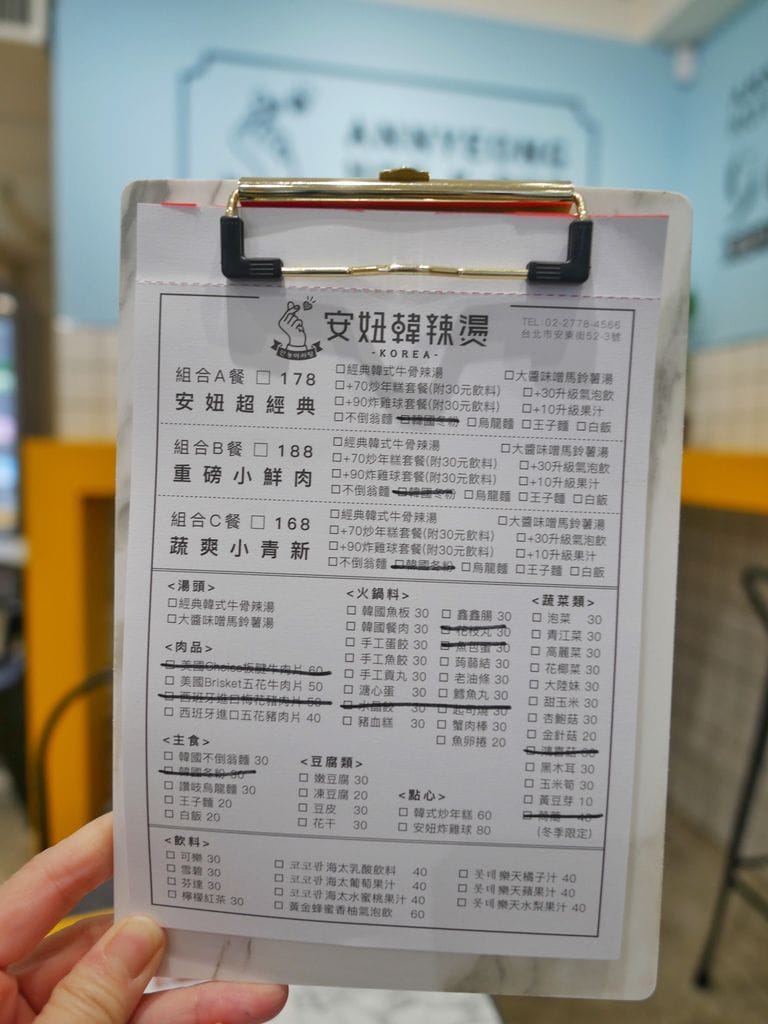 ANNYEONG
안녕마라탕
安妞韓辣湯
-KOREA-
TEL:02-2778-4566
台北市安東街52-3號
組合A餐 □ 178
安妞超經典
□經典韓式牛骨辣湯 □大醬味噌馬鈴薯湯
□+70炒年糕套餐(附30元飲料) □+30升級氣泡飲
□+90炸雞球套餐(附30元飲料) □+10升級果汁
□不倒翁麵 □韓國冬粉 □烏龍麵 □王子麵 □白飯
組合B餐 □ 188
重磅小鮮肉
□經典韓式牛骨辣湯 □大醬味噌馬鈴薯湯
□+70炒年糕套餐(附30元飲料) □+30升級氣泡飲
□+90炸雞球套餐(附30元飲料) □+10升級果汁
□不倒翁麵 □韓國冬粉 □烏龍麵 □王子麵 □白飯
組合C餐 □ 168
蔬爽小青新
□經典韓式牛骨辣湯 □大醬味噌馬鈴薯湯
□+70炒年糕套餐(附30元飲料) □+30升級氣泡飲
□+90炸雞球套餐(附30元飲料) □+10升級果汁
□不倒翁麵 □韓國冬粉 □烏龍麵 □王子麵 □白飯
<湯頭>
□經典韓式牛骨辣湯
□大醬味噌馬鈴薯湯
<肉品>
□ 美國Choice板腱牛肉片 60
□ 美國Brisket五花牛肉片 50
□ 西班牙進口梅花豬肉片 50
□ 西班牙進口五花豬肉片 40
<火鍋料>
□ 韓國魚板 30
□ 韓國餐肉 30
□ 手工蛋餃 30
□ 手工魚餃 30
□ 手工貢丸 30
□ 溏心蛋 30
□ 水晶餃 30
□ 豬血糕 30
□ 鑫鑫腸 30
□ 花枝丸 30
□ 魚包蛋 30
□ 蒟蒻結 30
□ 老油條 30
□ 鱈魚丸 30
□ 起司燒 30
□ 蟹肉棒 30
□ 魚卵捲 20
<蔬菜類>
□ 泡菜 30
□ 青江菜 30
□ 高麗菜 30
□ 花椰菜 30
□ 大陸妹 30
□ 甜玉米 30
□ 杏鮑菇 30
□ 金針菇 20
□ 鴻喜菇 30
□ 黑木耳 30
□ 玉米筍 30
□ 黃豆芽 10
□ 茼蒿 40
(冬季限定)
<主食>
□ 韓國不倒翁麵 30
□ 韓國冬粉 30
□ 讚岐烏龍麵 30
□ 王子麵 20
□ 白飯 20
<豆腐類>
□ 嫩豆腐 30
□ 凍豆腐 20
□ 豆皮 30
□ 花干 30
<點心>
□ 韓式炒年糕 60
□ 安妞炸雞球 80
<飲料>
□ 可樂 30
□ 雪碧 30
□ 芬達 30
□ 檸檬紅茶 30
□ 코코팜海太乳酸飲料 40
□ 코코팜海太葡萄果汁 40
□ 코코팜海太水蜜桃果汁 40
□ 黃金蜂蜜香柚氣泡飲 60
□ 롯데樂天橘子汁 40
□ 롯데樂天蘋果汁 40
□ 롯데樂天水梨果汁 40